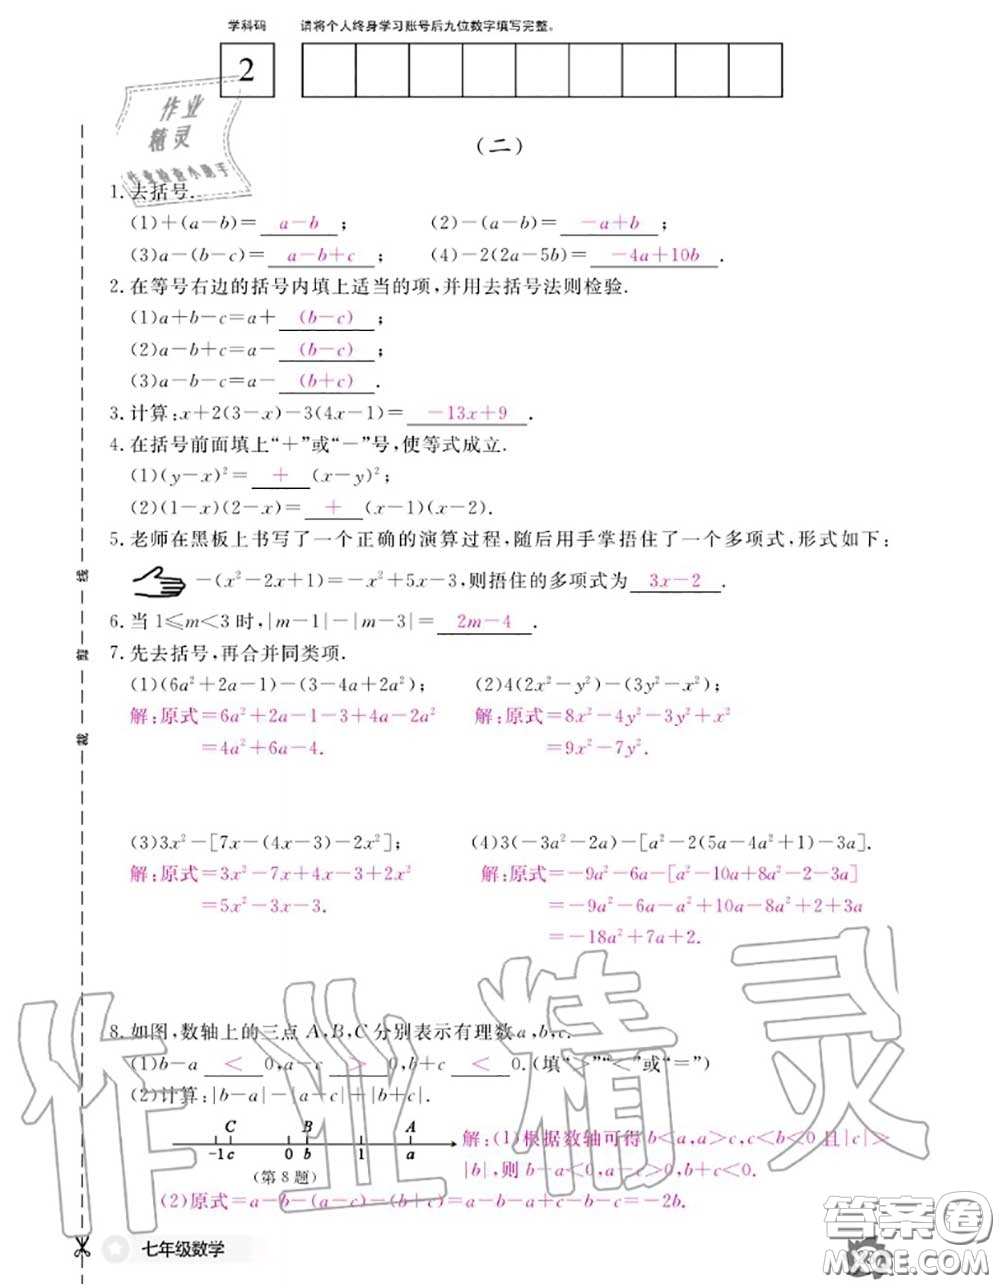 学科码 请将个人终身学习账号后九位数字填写完整。
2
作业
精灵
作业检查小助手
(二)
1.去括号.
(1)+(a-b)= a-b ; (2)-(a-b)= -a+b ;
(3)a-(b-c)= a-b+c ; (4)-2(2a-5b)= -4a+10b .
2.在等号右边的括号内填上适当的项,并用去括号法则检验.
(1)a+b-c=a+ (b-c) ;
(2)a-b+c=a- (b-c) ;
(3)a-b-c=a- (b+c) .
3.计算:x+2(3-x)-3(4x-1)= -13x+9 .
4.在括号前面填上“+”或“-”号,使等式成立.
(1)(y-x)²= + (x-y)²;
(2)(1-x)(2-x)= + (x-1)(x-2).
5.老师在黑板上书写了一个正确的演算过程,随后用手掌捂住了一个多项式,形式如下:
-(x²-2x+1)=-x²+5x-3,则捂住的多项式为 3x-2 .
6.当1≤m<3时,|m-1|-|m-3|= 2m-4 .
7.先去括号,再合并同类项.
(1)(6a²+2a-1)-(3-4a+2a²); (2)4(2x²-y²)-(3y²-x²);
解:原式=6a²+2a-1-3+4a-2a² 解:原式=8x²-4y²-3y²+x²
=4a²+6a-4. =9x²-7y².
(3)3x²-[7x-(4x-3)-2x²]; (4)3(-3a²-2a)-[a²-2(5a-4a²+1)-3a].
解:原式=3x²-7x+4x-3+2x² 解:原式=-9a²-6a-[a²-10a+8a²-2-3a]
=5x²-3x-3. =-9a²-6a-a²+10a-8a²+2+3a
=-18a²+7a+2.
8.如图,数轴上的三点A,B,C分别表示有理数a,b,c.
(1)b-a < 0,a-c > 0,b+c < 0.(填“>”“<”或“=”)
(2)计算:|b-a|-|a-c|+|b+c|.
C B A 解:(1)根据数轴可得b<a,a>c,c<b<0且|c|>
-1 c 0 b 1 a |b|,则b-a<0,a-c>0,b+c<0.
(第8题)
(2)原式=a-b-(a-c)-(b+c)=a-b-a+c-b-c=-2b.
线
剪
裁
七年级数学
作业精灵
答案圈